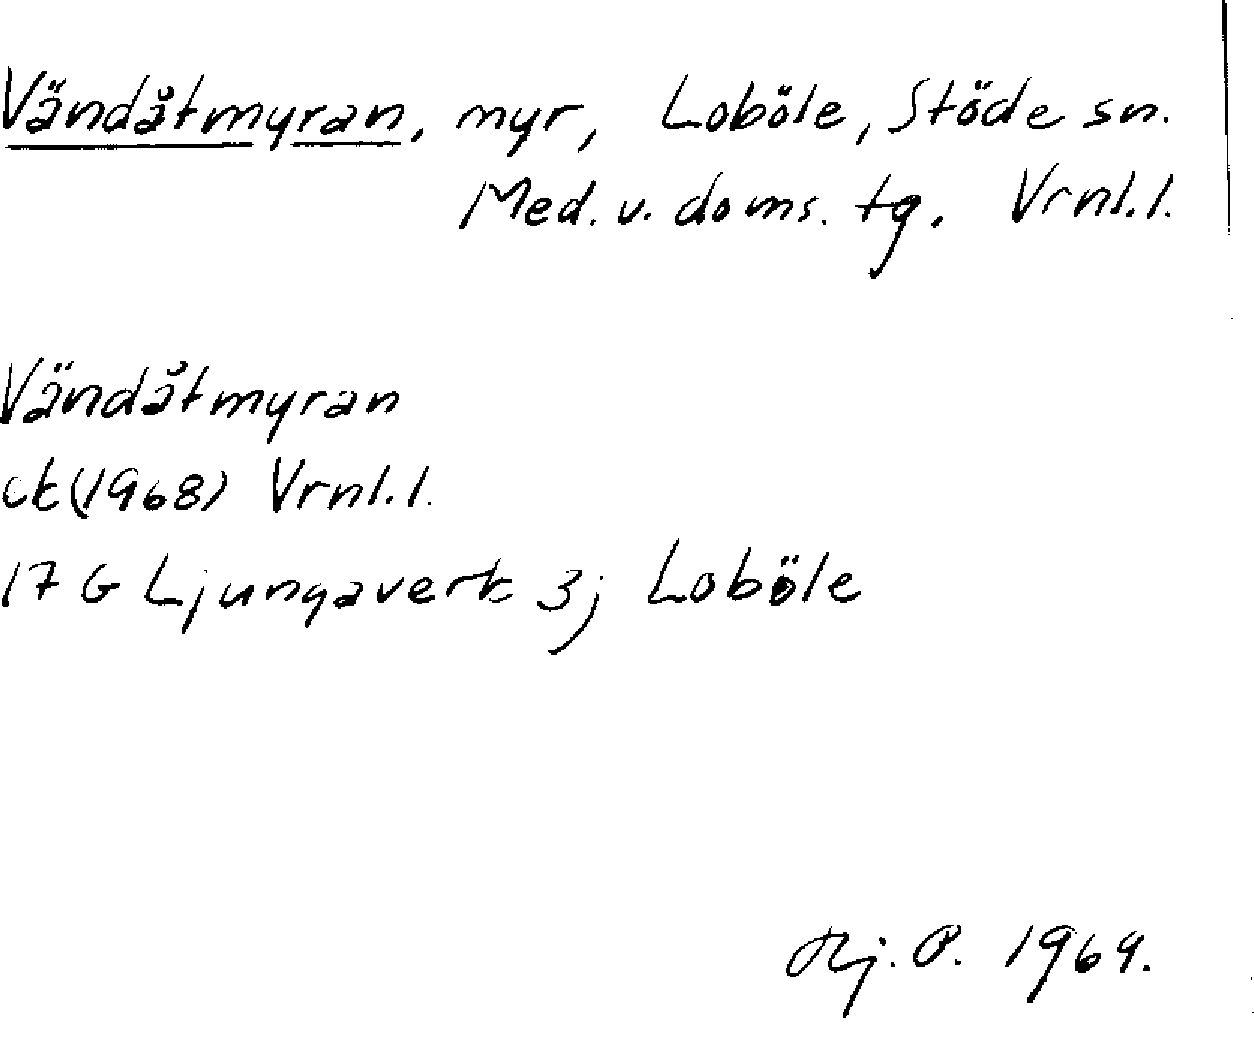 Vändåtmyran, myr, Loböle, Stöde sn.
Med. v. doms. tg. Vrnl.l.
Vändåtmyran
ck (1968) Vrnl.l.
17 G Ljungaverk 3j Loböle
Hj. P. 1969.